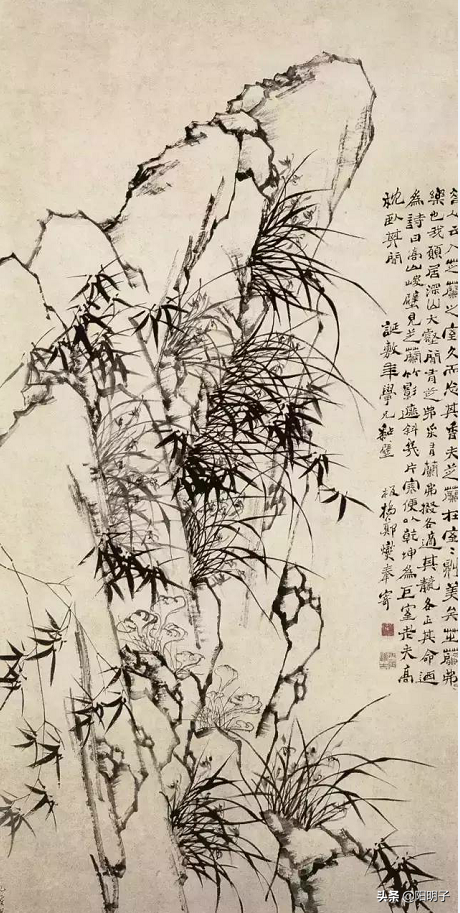 昔人云入芝蘭之室久而忘其香夫芝蘭在室室則美矣芝蘭弗
樂也我願居深山大壑間有芝弗采有蘭弗掇各適其各正其命迺
為詩曰高山峻壁見芝蘭竹影遮斜幾片寒便以乾坤為巨室老夫高
枕臥其間 誕敷年學兄 板橋鄭燮奉寄
头条 @阳明子